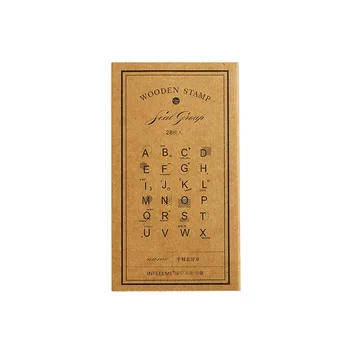 WOODEN STAMP
Group
28枚入
A B C D
E F G H
I J K L
M N O P
Q R S T
U V W X
INFEELME